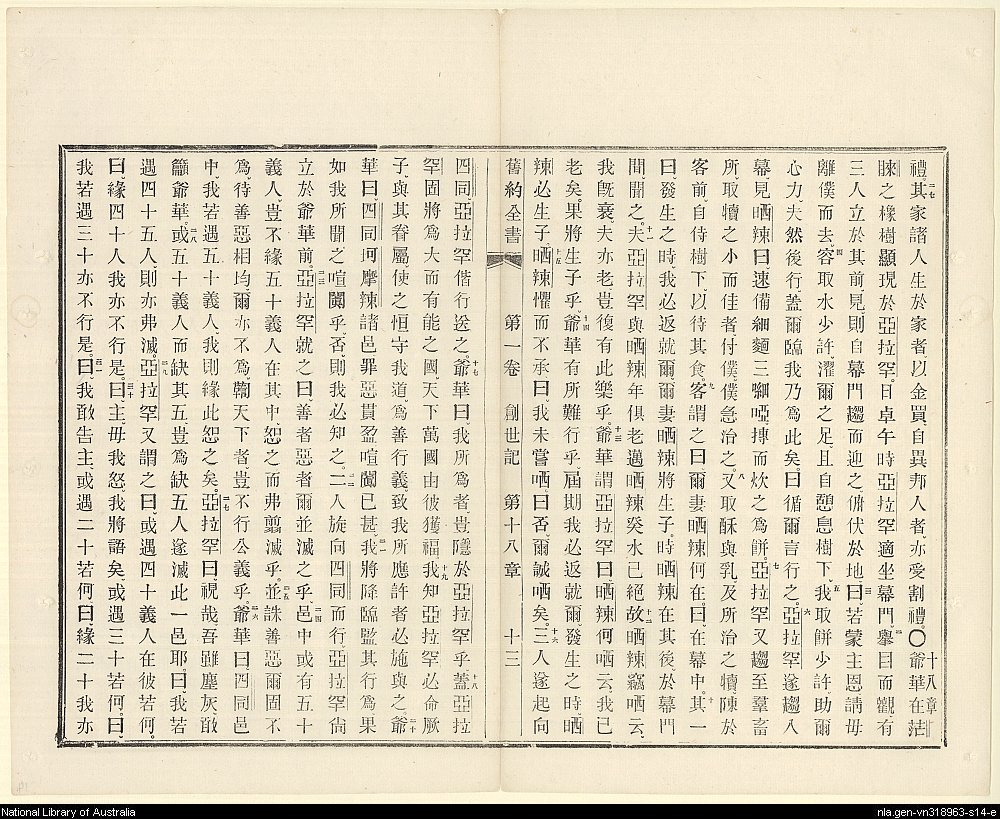 禮。二七其家諸人生於家者、以金買、自異邦人者、亦受割禮。〇十八章爺華在茫
睞之橡樹顯現於亞拉罕。日卓午時、亞拉罕適坐幕門、二舉目而觀、有
三人立於其前、見則自幕門趨而迎之、俯伏於地、三曰、若蒙主恩、請毋
離僕而去、四容取水少許、濯爾之足、且自憩息樹下、五我取餅少許、助爾
心力、夫然後行、蓋爾臨我、乃爲此矣。曰、循爾言行之。六亞拉罕遂趨入
幕、見晒辣曰、速備細麵三㖼啞、摶而炊之爲餅。七亞拉罕又趨至羣畜
所、取犢之小而佳者、付僕、僕急治之。八又取酥與乳、及所治之犢、陳於
客前、自侍樹下、以待其食。九客謂之曰、爾妻晒辣何在。曰、在幕中。十其一
曰、發生之時、我必返就爾、爾妻晒辣將生子。時晒辣在其後、於幕門
間、聞之。十一夫亞拉罕與晒辣年俱老邁、晒辣癸水已絕、十二故晒辣竊哂云、
我旣衰、夫亦老、豈復有此樂乎。十三爺華謂亞拉罕曰、晒辣何哂、云我已
老矣、果將生子乎。十四爺華有所難行乎、屆期我必返就爾、發生之時、晒
辣必生子。十五晒辣懼而不承、曰、我未嘗哂。曰、否、爾誠哂矣。十六三人遂起、向
舊約全書 第一卷 創世記 第十八章 十三
四同、亞拉罕偕行送之。十七爺華曰、我所爲者、豈隱於亞拉罕乎。十八蓋亞拉
罕固將爲大而有能之國、天下萬國由彼獲福。十九我知亞拉罕必命厥
子、與其眷屬、使之恒守我道、爲善行義、致我所應許者、必施與之。二十爺
華曰、四同坷摩辣諸邑罪惡貫盈、喧闐已甚、二一我將降臨、監其行爲、果
如我所聞之喧闐乎、否則我必知之。二二二人旋向四同而行、亞拉罕尙
立於爺華前。二三亞拉罕就之曰、善者惡者、爾並滅之乎。二四邑中或有五十
義人、豈不緣五十義人在其中、恕之而弗翦滅乎。二五並誅善惡、爾固不
爲、待善惡相均、爾亦不爲、鞫天下者、豈不行公義乎。二六爺華曰、四同邑
中、我若遇五十義人、我則緣此恕之矣。二七亞拉罕曰、視哉、吾雖塵灰、敢
籲爺華、二八或五十義人而缺其五、豈爲缺五人、遂滅此一邑耶。曰、我若
遇四十五人、則亦弗滅。二九亞拉罕又謂之曰、或遇四十義人在彼若何。
曰、緣四十人、我亦不行是。三十曰、主、毋我怒、我將語矣、或遇三十若何。曰、
我若遇三十、亦不行是。三一曰、我敢告主、或遇二十若何。曰、緣二十、我亦
National Library of Australia
nla.gen-vn318963-s14-e